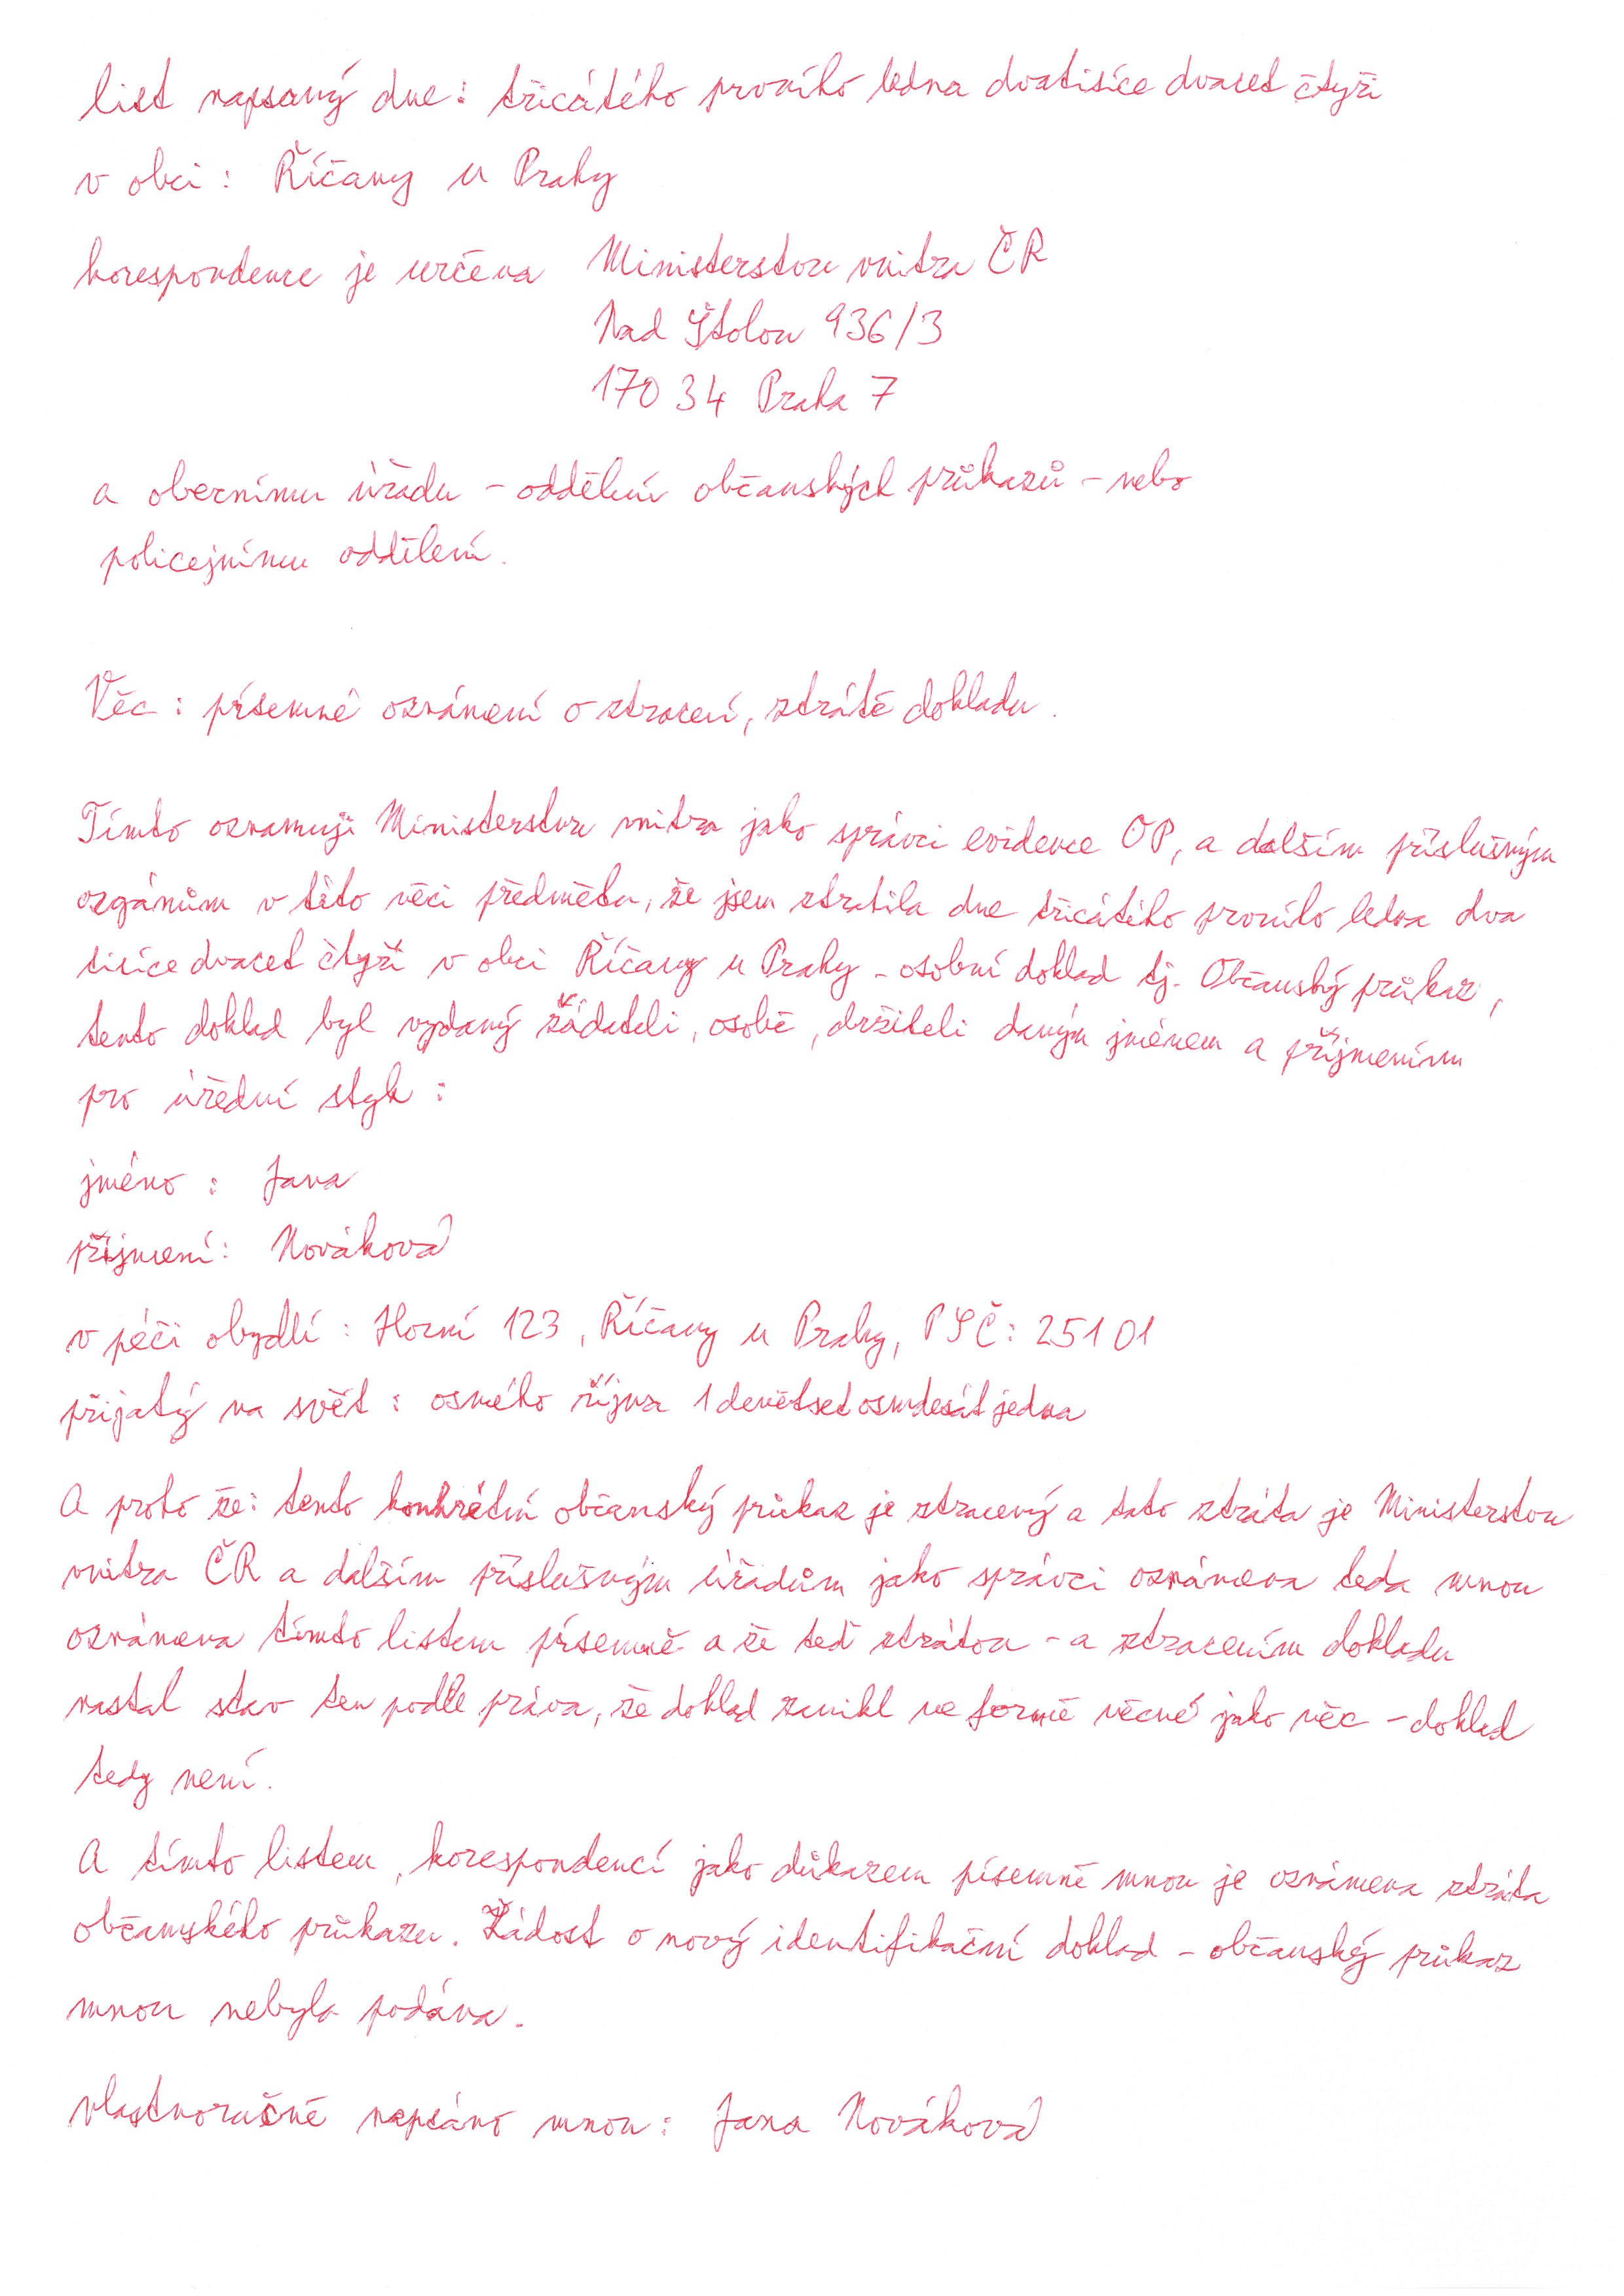 list napsaný dne: třicátého prvního ledna dvatisíce dvacet čtyři
v obci: Říčany u Prahy
korespondence je určena Ministerstvu vnitra ČR
Nad Štolou 936/3
170 34 Praha 7
a obecnímu úřadu - oddělení občanských průkazů - nebo
policejnímu oddělení.
Věc: písemné oznámení o ztracení, ztrátě dokladu.
Tímto oznamuji Ministerstvu vnitra jako správci evidence OP, a dalším příslušným
orgánům v této věci předmětu, že jsem ztratila dne třicátého prvního ledna dva
tisíce dvacet čtyři v obci Říčany u Prahy - osobní doklad tj. Občanský průkaz,
tento doklad byl vydaný žádateli, osobě, držiteli daným jménem a příjmením
pro úřední styk:
jméno: Jana
příjmení: Nováková
v péči obydlí: Horní 123, Říčany u Prahy, PSČ: 251 01
přijatý na svět: osmého října 1devětset osmdesát jedna
A proto že: tento konkrétní občanský průkaz je ztracený a tato ztráta je Ministerstvu
vnitra ČR a dalším příslušným úřadům jako správci oznámena teda mnou
oznámena tímto listem písemně a že teď ztrátou - a ztracením dokladu
nastal stav ten podle práva, že doklad zanikl ve formě věcné jako věc - doklad
tedy není.
A tímto listem, korespondencí jako důkazem písemně mnou je oznámena ztráta
občanského průkazu. Žádost o nový identifikační doklad - občanský průkaz
mnou nebyla podána.
vlastnoručně napsáno mnou: Jana Nováková